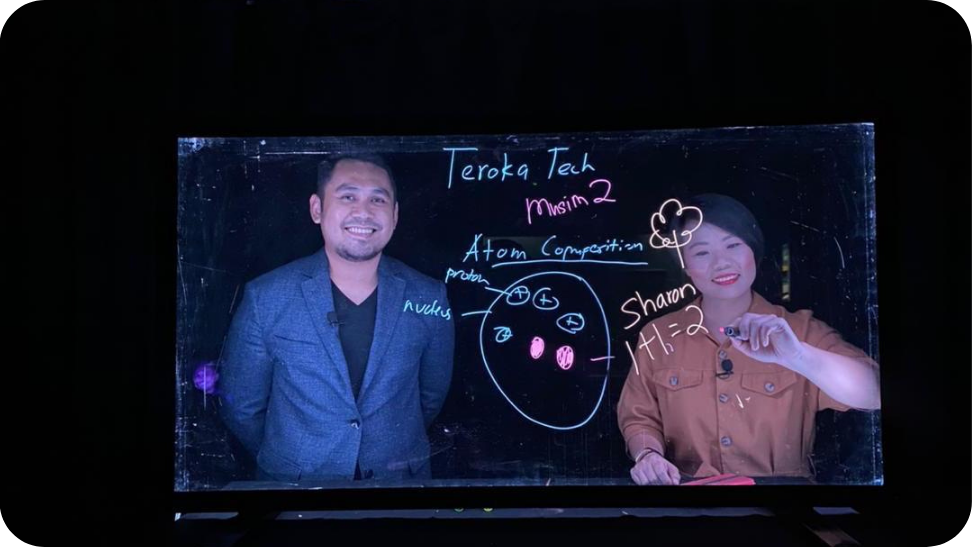 Teroka Tech
Musim 2
Atom Composition
proton
nucleus
+
+
+
+
Sharon
1+1=2